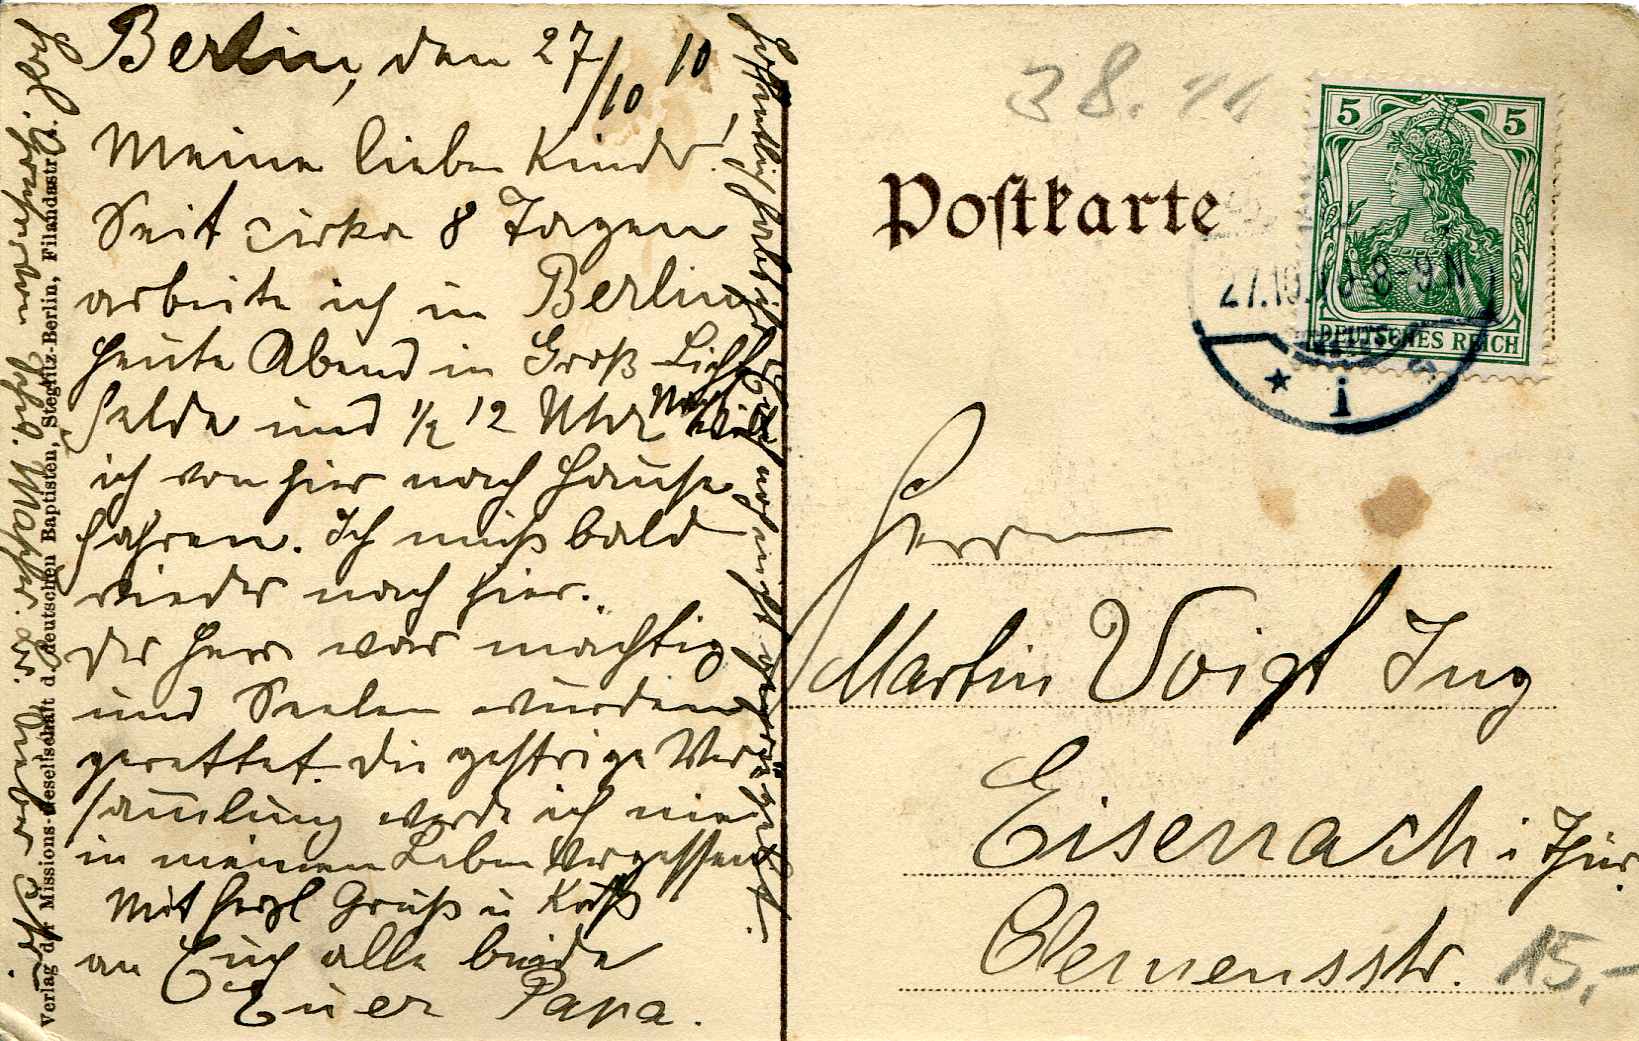 Berlin, den 27/10 10
Meine lieben Kinder!
Seit cirka 8 Tagen
arbeite ich in Berlin
heute Abend in Groß-Lichter
felde und 1/2 12 Uhr Nachts will
ich von hier nach Hause
fahren. Ich muß bald
wieder nach hier.
Der Herr war mächtig
und Seelen wurden
gerettet. Die gestrige Ver
samlung werde ich nie
in meinem Leben Vergessen
Mit herzl Gruß u Kuß
an Euch alle beide
Euer Papa.
Hoffentlich habt ihr
noch nicht
Verlag der Missions-Gesellschaft d. deutschen Baptisten, Steglitz-Berlin, Filandastr.
Postkarte
38. 11
5 5
DEUTSCHES REICH
27.10.10 8-9N
* i
Herrn
Martin Voigt Ing
Eisenach i Thür.
Clemensstr.
15,-